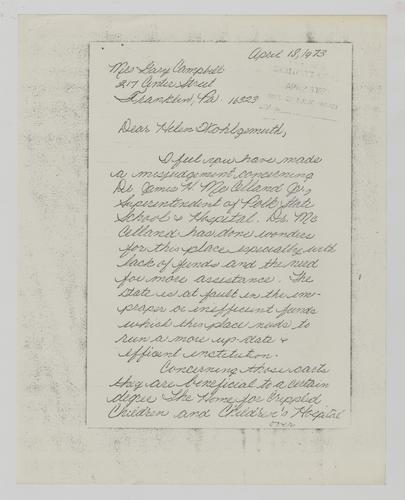 April 18, 1973
Mrs Gary Campbell
217 Center Street
Franklin, Pa. 16323
Dear Helen Wohlgemuth,
I feel you have made
a misjudgement concerning
Dr. James H. McClelland Jr.,
Superintendent of Polk State
School & Hospital. Dr. Mc
Clelland has done wonders
for this place especially with
lack of funds and the need
for more assistance. The
State is at fault in the im-
proper or inefficient funds
which this place needs to
run a more up-date &
efficent institution.
Concerning those carts
they are beneficial to a certain
degree. The Home for Crippled
Children and Children's Hospital
over